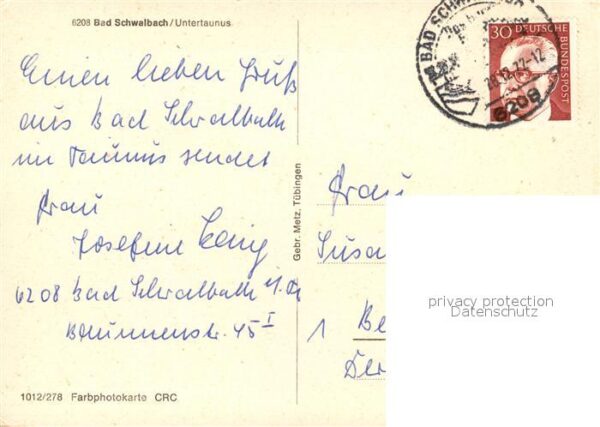 6208 Bad Schwalbach/Untertaunus
Einen lieben Gruß
aus Bad Schwalbach
im Taunus sendet
Frau
Josefine
6208 Bad Schwalbach
Brunnenstr. 45 I
1012/278 Farbphotokarte CRC
Gebr. Metz, Tübingen
BAD SCHWALBACH
28.12.72-12
6208
30 DEUTSCHE
BUNDESPOST
Frau
Susa
1 Be
privacy protection
Datenschutz